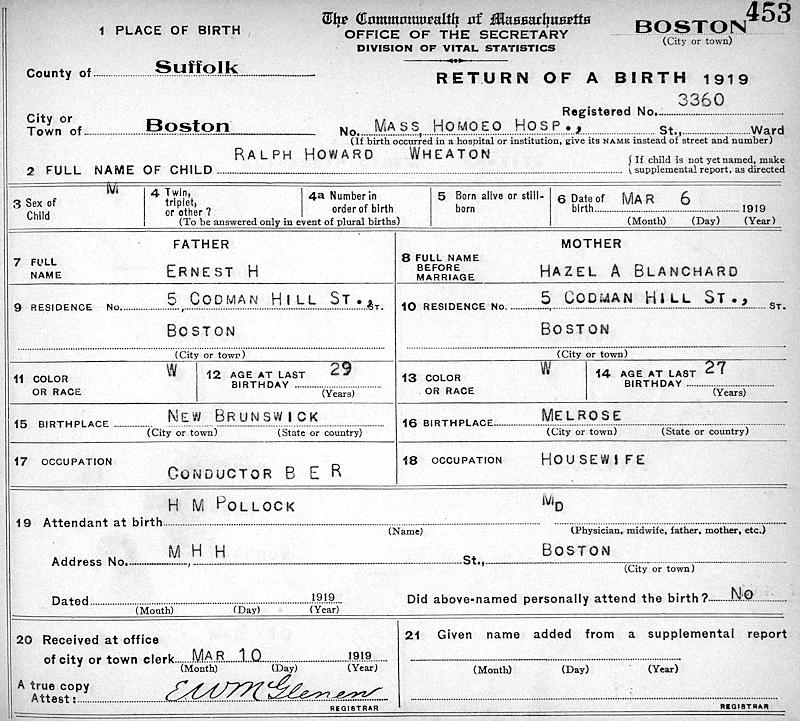 453
The Commonwealth of Massachusetts
OFFICE OF THE SECRETARY
DIVISION OF VITAL STATISTICS
BOSTON
(City or town)
1 PLACE OF BIRTH
County of Suffolk
RETURN OF A BIRTH 1919
Registered No. 3360
City or
Town of Boston
No. MASS HOMOEO HOSP., St., Ward
(If birth occurred in a hospital or institution, give its NAME instead of street and number)
2 FULL NAME OF CHILD RALPH HOWARD WHEATON
{ If child is not yet named, make
supplemental report, as directed
3 Sex of Child M
4 Twin, triplet, or other?
4a Number in order of birth
(To be answered only in event of plural births)
5 Born alive or still-born
6 Date of birth MAR 6 1919
(Month) (Day) (Year)
FATHER
MOTHER
7 FULL NAME ERNEST H
8 FULL NAME BEFORE MARRIAGE HAZEL A BLANCHARD
9 RESIDENCE No. 5 CODMAN HILL ST., ST.
BOSTON
(City or town)
10 RESIDENCE No. 5 CODMAN HILL ST., ST.
BOSTON
(City or town)
11 COLOR OR RACE W
12 AGE AT LAST BIRTHDAY 29
(Years)
13 COLOR OR RACE W
14 AGE AT LAST BIRTHDAY 27
(Years)
15 BIRTHPLACE NEW BRUNSWICK
(City or town) (State or country)
16 BIRTHPLACE MELROSE
(City or town) (State or country)
17 OCCUPATION CONDUCTOR B E R
18 OCCUPATION HOUSEWIFE
19 Attendant at birth H M POLLOCK MD
(Name) (Physician, midwife, father, mother, etc.)
Address No. M H H St., BOSTON
(City or town)
Dated 1919
(Month) (Day) (Year)
Did above-named personally attend the birth? No
20 Received at office
of city or town clerk MAR 10 1919
(Month) (Day) (Year)
A true copy
Attest: E W McGlenen
REGISTRAR
21 Given name added from a supplemental report
(Month) (Day) (Year)
REGISTRAR